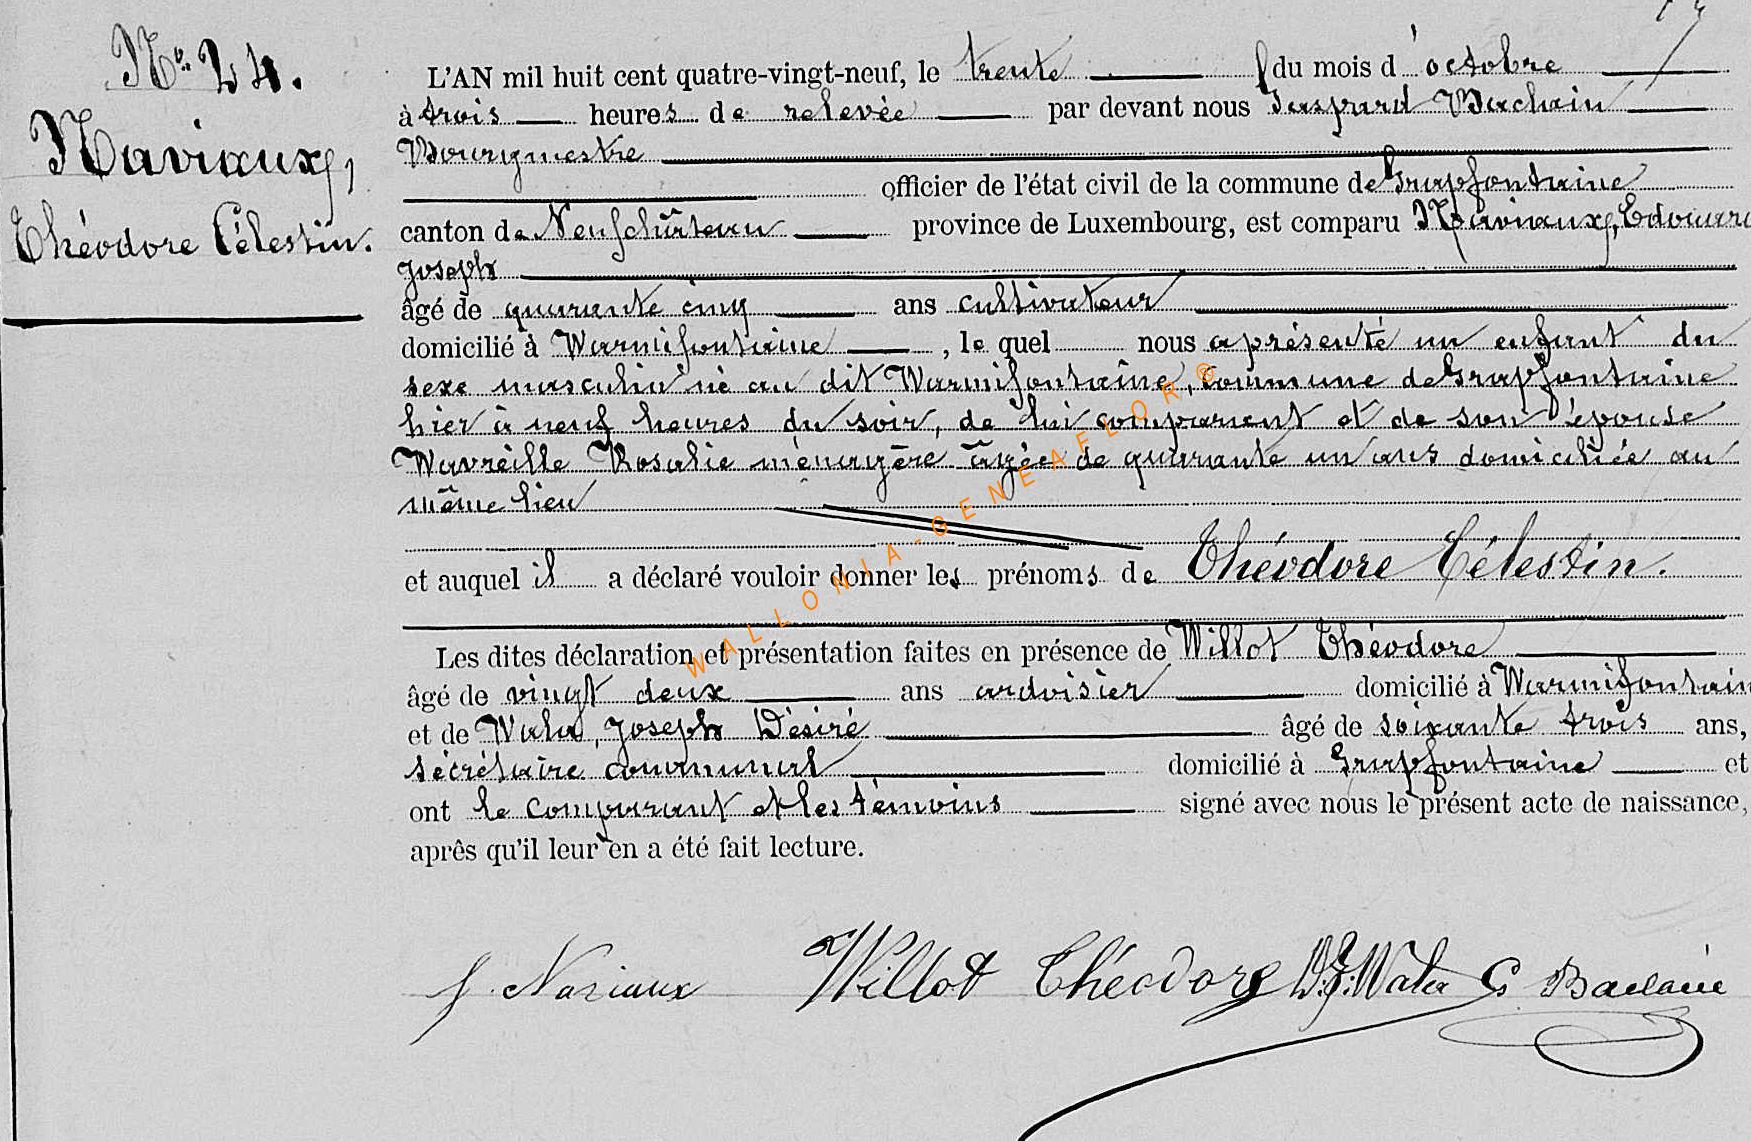 Nº 24.
Naviaux,
Théodore Célestin.
L'AN mil huit cent quatre-vingt-neuf, le trente du mois d'octobre
à trois heures de relevée par devant nous Gaspard Baclain
Bourgmestre
officier de l'état civil de la commune de Grapfontaine
canton de Neufchâteau province de Luxembourg, est comparu Naviaux, Edouard
Joseph
âgé de quarante cinq ans cultivateur
domicilié à Warmifontaine, lequel nous a présenté un enfant du
sexe masculin né au dit Warmifontaine, commune de Grapfontaine
hier à neuf heures du soir, de lui comparant et de son épouse
Wavreille Rosalie ménagère âgée de quarante un ans domiciliée au
même lieu
et auquel il a déclaré vouloir donner les prénoms de Théodore Célestin.
Les dites déclaration et présentation faites en présence de Willot Théodore
âgé de vingt deux ans ardoisier domicilié à Warmifontain
et de Wala, Joseph Désiré âgé de soixante trois ans,
sécrétaire communal domicilié à Grapfontaine et
ont le comparant et les témoins signé avec nous le présent acte de naissance,
après qu'il leur en a été fait lecture.
J. Naviaux Willot Théodore D.J. Wala G Baclain
WALLONIA-GENEAFLOR®